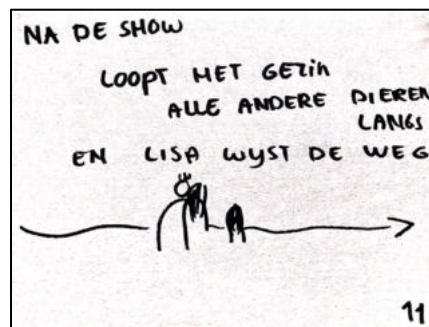 NA DE SHOW
LOOPT HET GEZIN
ALLE ANDERE DIEREN
LANGS
EN LISA WYST DE WEG
11